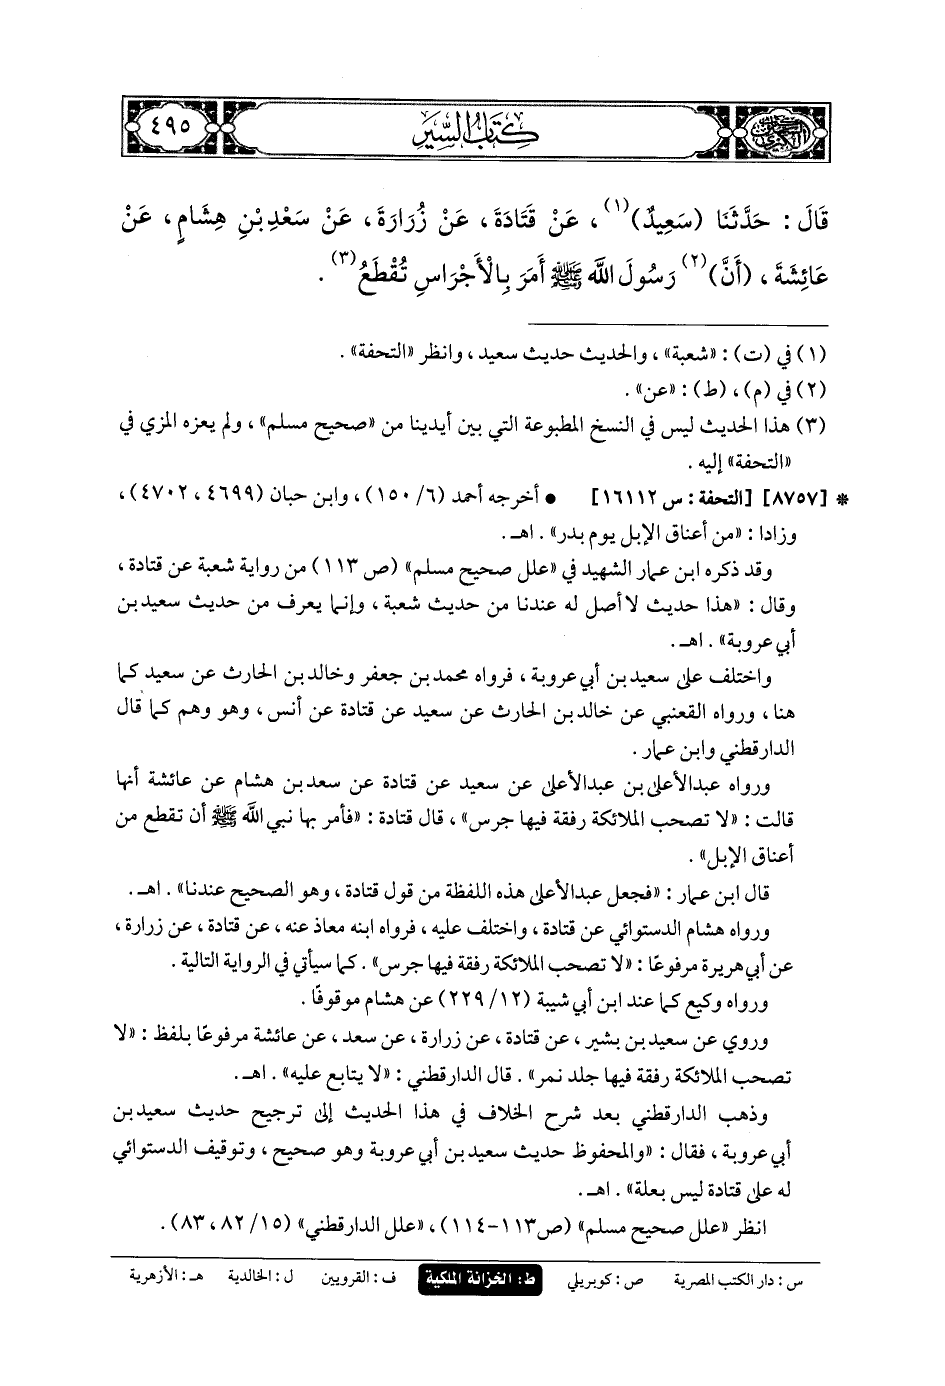 كتاب السير
٤٩٥
قَالَ : حَدَّثَنَا (سَعِيدٌ)(١) ، عَنْ قَتَادَةَ ، عَنْ زُرَارَةَ ، عَنْ سَعْدِ بْنِ هِشَامٍ ، عَنْ
عَائِشَةَ ، (أَنَّ)(٢) رَسُولَ اللَّه ﷺ أَمَرَ بِالْأَجْرَاسِ تُقْطَعُ(٣) .
(١) في (ت) : «شعبة» ، والحديث حديث سعيد ، وانظر «التحفة» .
(٢) في (م) ، (ط) : «عن» .
(٣) هذا الحديث ليس في النسخ المطبوعة التي بين أيدينا من «صحيح مسلم» ، ولم يعزه المزي في
«التحفة» إليه .
* [٨٧٥٧] [التحفة : س ١٦١١٢] • أخرجه أحمد (٦/ ١٥٠) ، وابن حبان (٤٦٩٩ ، ٤٧٠٢) ،
وزادا : «من أعناق الإبل يوم بدر» . اهـ .
وقد ذكره ابن عمار الشهيد في «علل صحيح مسلم» (ص ١١٣) من رواية شعبة عن قتادة ،
وقال : «هذا حديث لا أصل له عندنا من حديث شعبة ، وإنما يعرف من حديث سعيد بن
أبي عروبة» . اهـ .
واختلف على سعيد بن أبي عروبة ، فرواه محمد بن جعفر وخالد بن الحارث عن سعيد كما
هنا ، ورواه القعنبي عن خالد بن الحارث عن سعيد عن قتادة عن أنس ، وهو وهم كما قال
الدارقطني وابن عمار .
ورواه عبدالأعلى بن عبدالأعلى عن سعيد عن قتادة عن سعد بن هشام عن عائشة أنها
قالت : «لا تصحب الملائكة رفقة فيها جرس» ، قال قتادة : «فأمر بها نبي اللَّه ﷺ أن تقطع من
أعناق الإبل» .
قال ابن عمار : «فجعل عبدالأعلى هذه اللفظة من قول قتادة ، وهو الصحيح عندنا» . اهـ .
ورواه هشام الدستوائي عن قتادة ، واختلف عليه ، فرواه ابنه معاذ عنه ، عن قتادة ، عن زرارة ،
عن أبي هريرة مرفوعًا : «لا تصحب الملائكة رفقة فيها جرس» . كما سيأتي في الرواية التالية .
ورواه وكيع كما عند ابن أبي شيبة (١٢/ ٢٢٩) عن هشام موقوفًا .
وروي عن سعيد بن بشير ، عن قتادة ، عن زرارة ، عن سعد ، عن عائشة مرفوعًا بلفظ : «لا
تصحب الملائكة رفقة فيها جلد نمر» . قال الدارقطني : «لا يتابع عليه» . اهـ .
وذهب الدارقطني بعد شرح الخلاف في هذا الحديث إلى ترجيح حديث سعيد بن
أبي عروبة ، فقال : «والمحفوظ حديث سعيد بن أبي عروبة وهو صحيح ، وتوقيف الدستوائي
له على قتادة ليس بعلة» . اهـ .
انظر «علل صحيح مسلم» (ص ١١٣-١١٤) ، «علل الدارقطني» (١٥/ ٨٢ ، ٨٣) .
س : دار الكتب المصرية ص : كوبريلي ط : الخزانة الملكية ف : القرويين ل : الخالدية هـ : الأزهرية